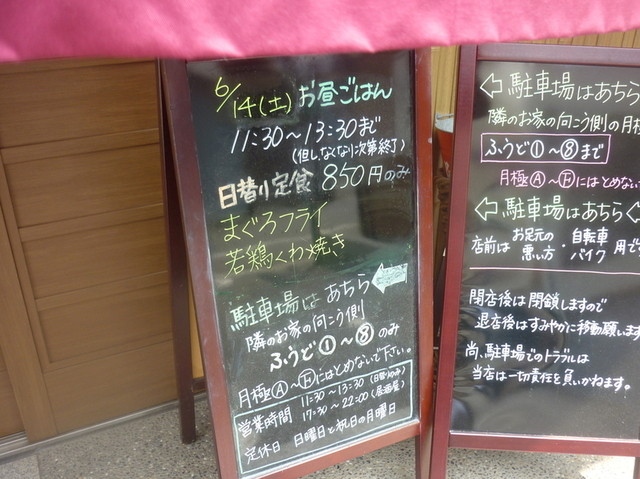 6/14(土)お昼ごはん
11:30～13:30まで
(但し、なくなり次第終了)
日替り定食 850円のみ
まぐろフライ
若鶏くわ焼き
駐車場はあちら
隣のお家の向こう側
ふうど①～⑧のみ
月極Ⓐ～Ⓕにはとめないで下さい。
営業時間 11:30～13:30(日替りのみ)
17:30～22:00(居酒屋)
定休日 日曜日と祝日の月曜日
駐車場はあちら
隣のお家の向こう側の月極
ふうど①～⑧まで
月極Ⓐ～Ⓕにはとめない
駐車場はあちら
店前は お足元の悪い方・自転車バイク 用で
閉店後は閉鎖しますので
退店後はすみやかに移動願います
尚、駐車場でのトラブルは
当店は一切責任を負いかねます。